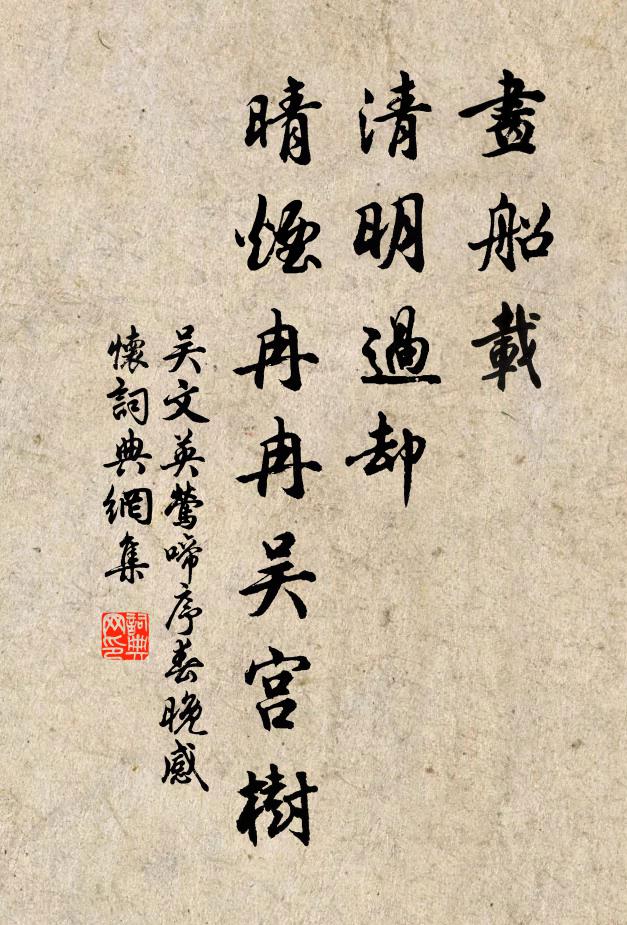 畫船載
清明過却
晴煙冉冉吴宫樹
吴文英鶯啼序春晚感
懷詞典網集
詞典
网印